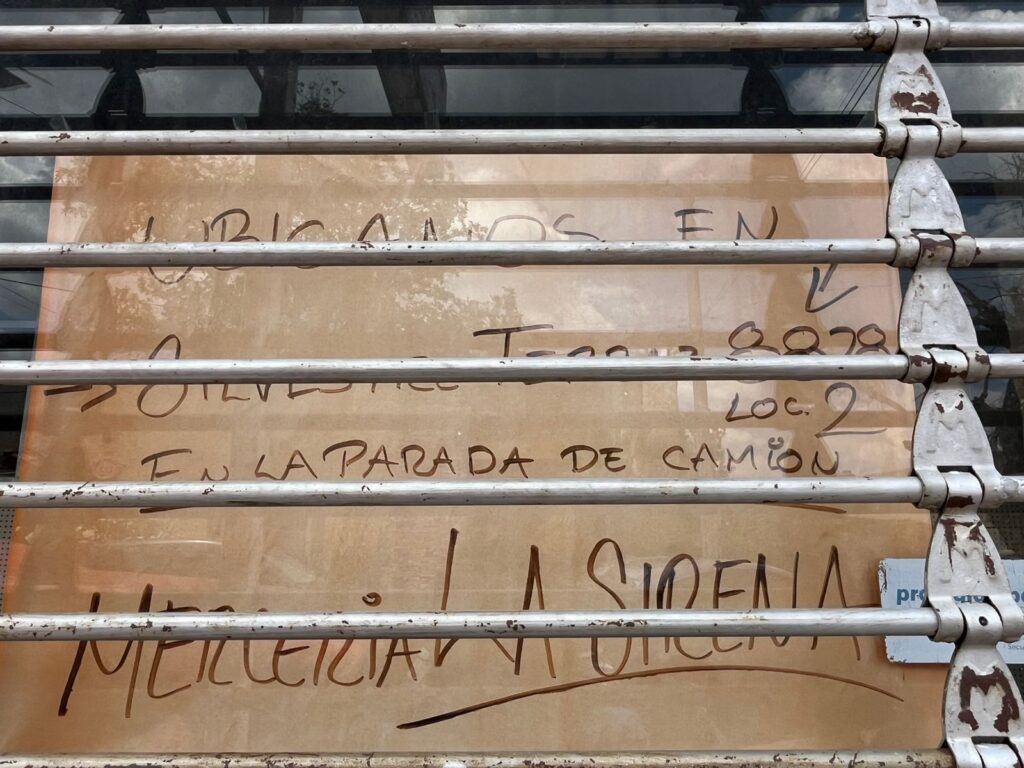 UBICANOS EN
→ SILVESTRE TERRAZ 8878
LOC. 2
EN LA PARADA DE CAMIÓN
MERCERIA LA SIRENA